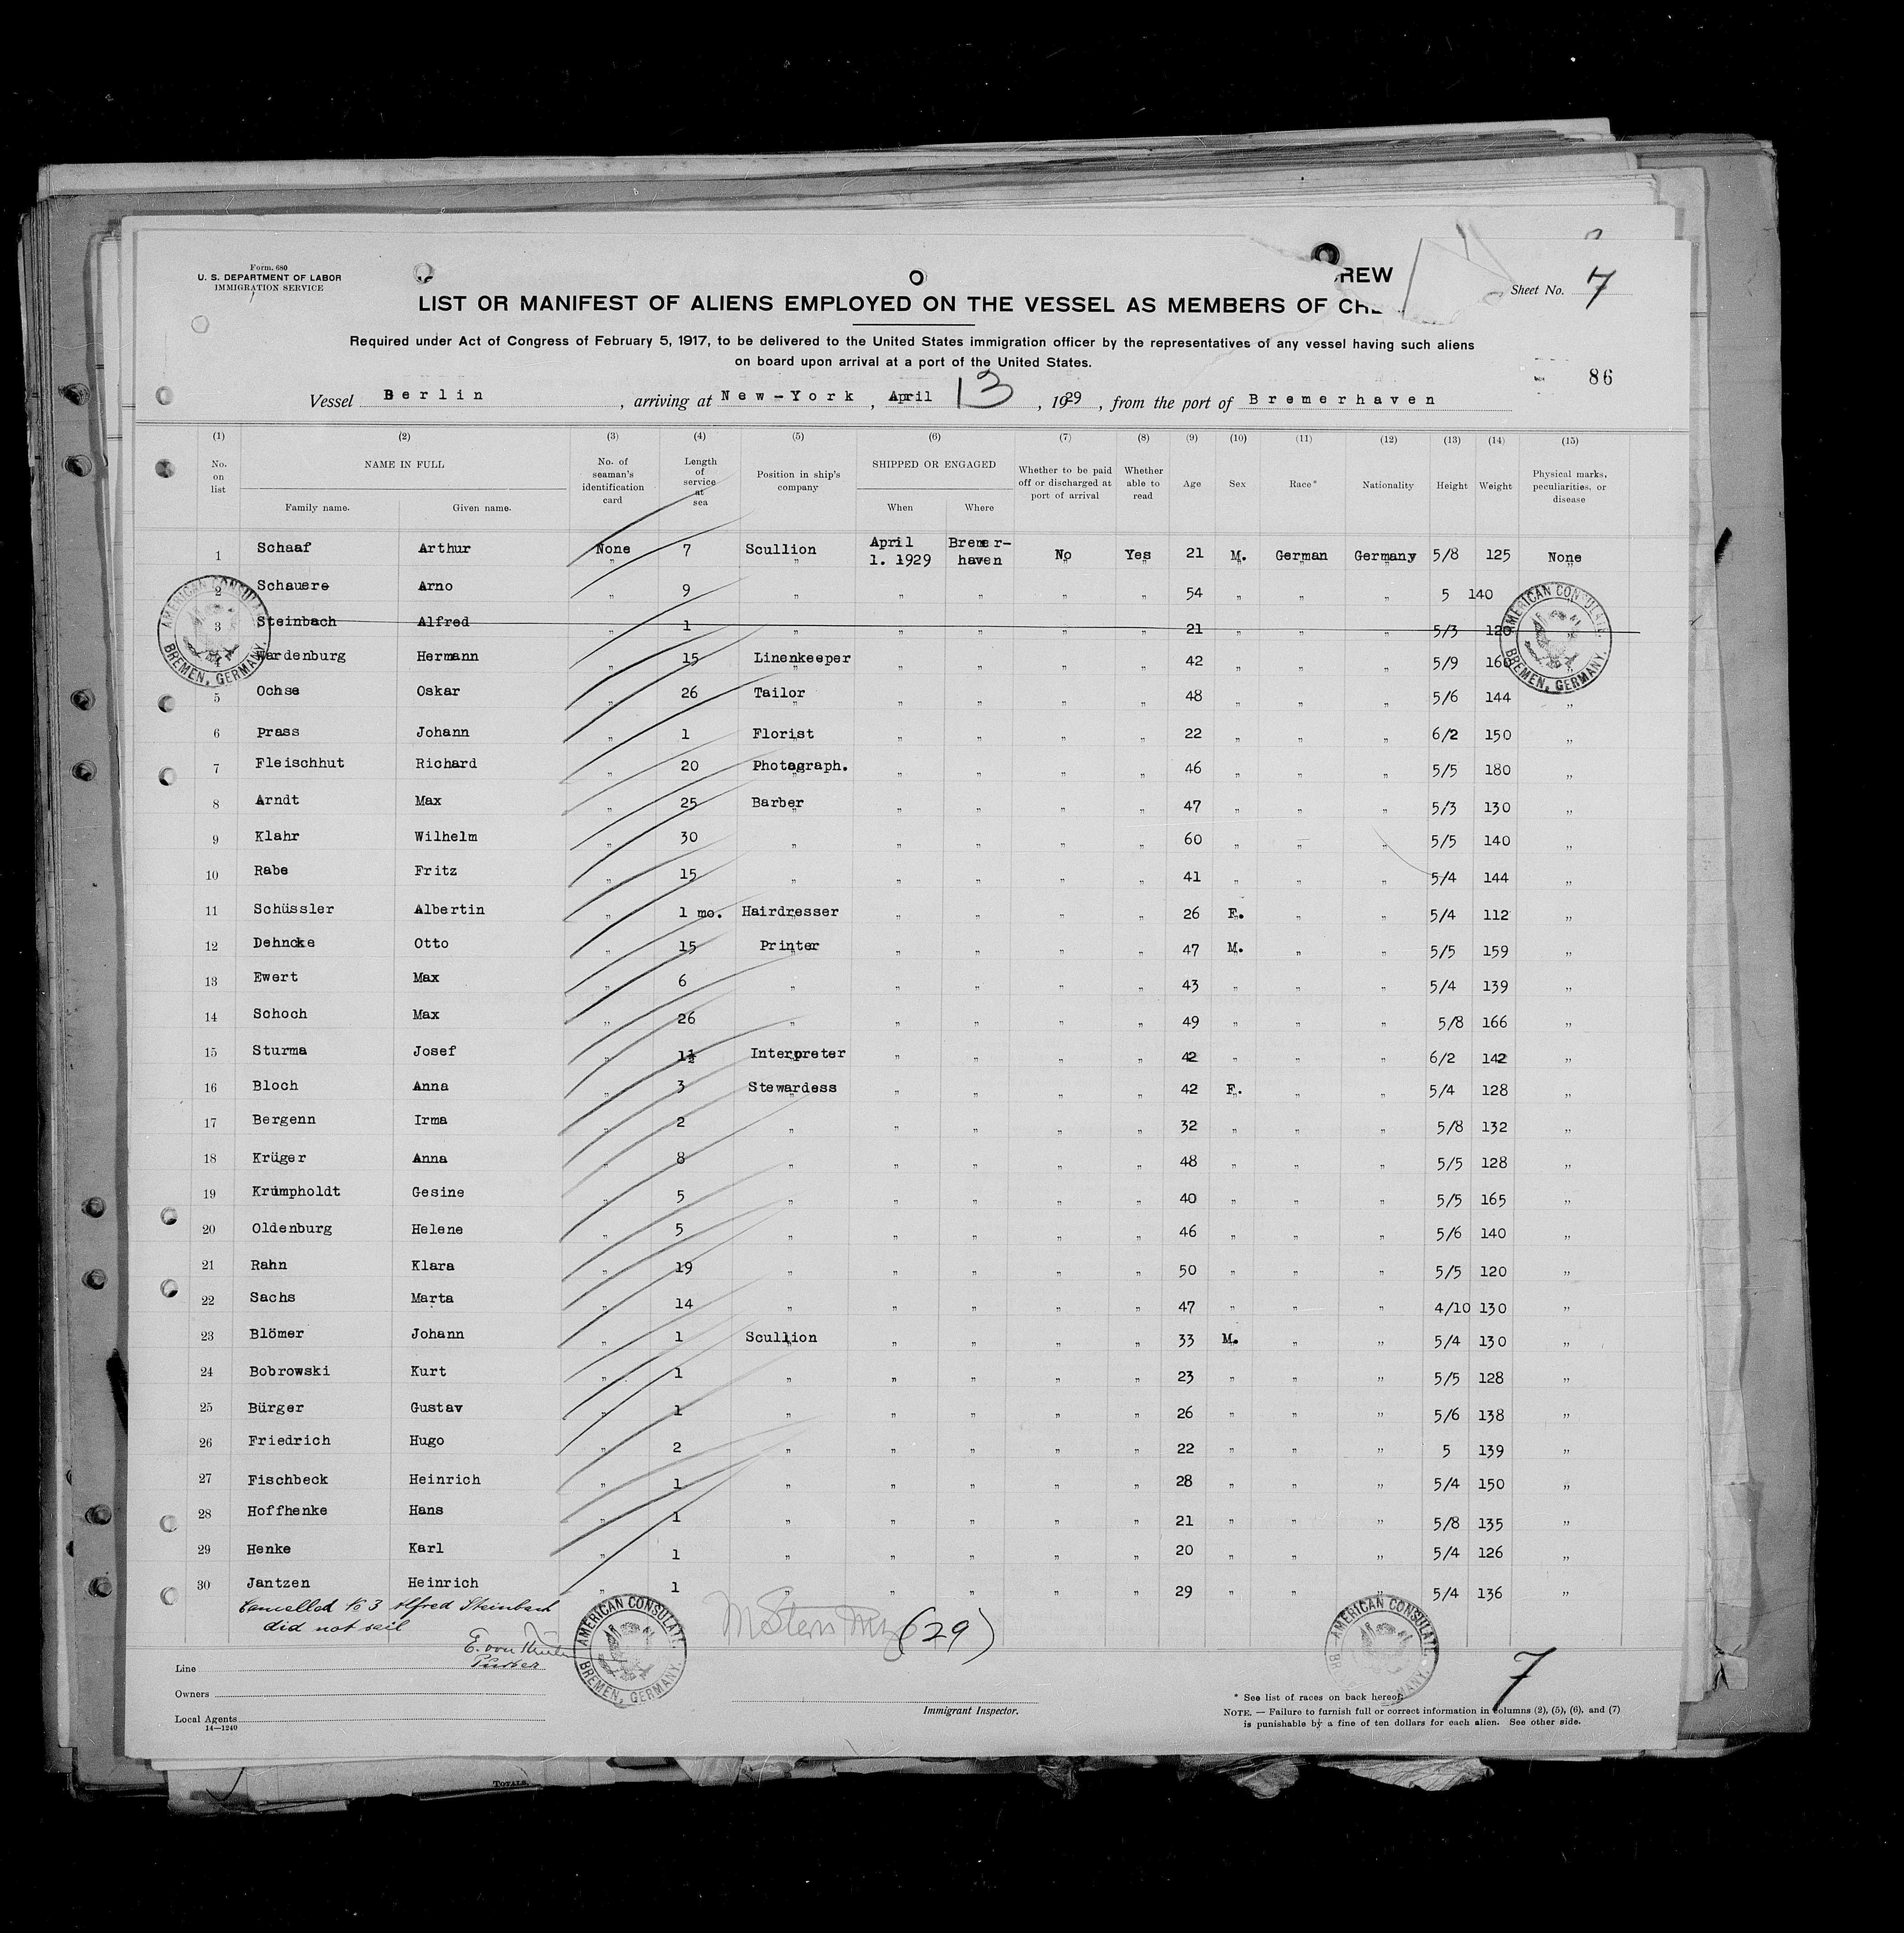 Form 680
U. S. DEPARTMENT OF LABOR
IMMIGRATION SERVICE
REW
Sheet No. 7
LIST OR MANIFEST OF ALIENS EMPLOYED ON THE VESSEL AS MEMBERS OF CRE
Required under Act of Congress of February 5, 1917, to be delivered to the United States immigration officer by the representatives of any vessel having such aliens
on board upon arrival at a port of the United States.
86
Vessel Berlin, arriving at New-York, April 13, 1929, from the port of Bremerhaven
(1) (2) (3) (4) (5) (6) (7) (8) (9) (10) (11) (12) (13) (14) (15)
No. on list NAME IN FULL Family name. Given name. No. of seaman's identification card Length of service at sea Position in ship's company SHIPPED OR ENGAGED When Where Whether to be paid off or discharged at port of arrival Whether able to read Age Sex Race* Nationality Height Weight Physical marks, peculiarities, or disease
1 Schaaf Arthur None 7 Scullion April 1. 1929 Bremer-haven No Yes 21 M. German Germany 5/8 125 None
2 Schauere Arno „ 9 „ „ „ „ „ 54 „ „ „ 5 140 „
3 Steinbach Alfred „ 1 „ „ „ „ „ 21 „ „ „ 5/3 120
4 Wardenburg Hermann „ 15 Linenkeeper „ „ „ „ 42 „ „ „ 5/9 160 „
5 Ochse Oskar „ 26 Tailor „ „ „ „ 48 „ „ „ 5/6 144 „
6 Prass Johann „ 1 Florist „ „ „ „ 22 „ „ „ 6/2 150 „
7 Fleischhut Richard „ 20 Photograph. „ „ „ „ 46 „ „ „ 5/5 180 „
8 Arndt Max „ 25 Barber „ „ „ „ 47 „ „ „ 5/3 130 „
9 Klahr Wilhelm „ 30 „ „ „ „ „ 60 „ „ „ 5/5 140 „
10 Rabe Fritz „ 15 „ „ „ „ „ 41 „ „ „ 5/4 144 „
11 Schüssler Albertin „ 1 mo. Hairdresser „ „ „ „ 26 F. „ „ 5/4 112 „
12 Dehncke Otto „ 15 Printer „ „ „ „ 47 M. „ „ 5/5 159 „
13 Ewert Max „ 6 „ „ „ „ „ 43 „ „ „ 5/4 139 „
14 Schoch Max „ 26 „ „ „ „ „ 49 „ „ „ 5/8 166 „
15 Sturma Josef „ 1½ Interpreter „ „ „ „ 42 „ „ „ 6/2 142 „
16 Bloch Anna „ 3 Stewardess „ „ „ „ 42 F. „ „ 5/4 128 „
17 Bergenn Irma „ 2 „ „ „ „ „ 32 „ „ „ 5/8 132 „
18 Krüger Anna „ 8 „ „ „ „ „ 48 „ „ „ 5/5 128 „
19 Krümpholdt Gesine „ 5 „ „ „ „ „ 40 „ „ „ 5/5 165 „
20 Oldenburg Helene „ 5 „ „ „ „ „ 46 „ „ „ 5/6 140 „
21 Rahn Klara „ 19 „ „ „ „ „ 50 „ „ „ 5/5 120 „
22 Sachs Marta „ 14 „ „ „ „ „ 47 „ „ „ 4/10 130 „
23 Blömer Johann „ 1 Scullion „ „ „ „ 33 M. „ „ 5/4 130 „
24 Bobrowski Kurt „ 1 „ „ „ „ „ 23 „ „ „ 5/5 128 „
25 Bürger Gustav „ 1 „ „ „ „ „ 26 „ „ „ 5/6 138 „
26 Friedrich Hugo „ 2 „ „ „ „ „ 22 „ „ „ 5 139 „
27 Fischbeck Heinrich „ 1 „ „ „ „ „ 28 „ „ „ 5/4 150 „
28 Hoffhenke Hans „ 1 „ „ „ „ „ 21 „ „ „ 5/8 135 „
29 Henke Karl „ 1 „ „ „ „ „ 20 „ „ „ 5/4 126 „
30 Jantzen Heinrich „ 1 „ „ „ „ „ 29 „ „ „ 5/4 136 „
AMERICAN CONSULATE. BREMEN, GERMANY.
AMERICAN CONSULATE. BREMEN, GERMANY.
Cancelled № 3 Alfred Steinbach
did not sail
E. von
Purser
AMERICAN CONSULATE. BREMEN, GERMANY.
(29)
AMERICAN CONSULATE. BREMEN, GERMANY.
7
Line
Owners
Local Agents
14—1240
Immigrant Inspector.
* See list of races on back hereof.
NOTE. — Failure to furnish full or correct information in columns (2), (5), (6), and (7)
is punishable by a fine of ten dollars for each alien. See other side.
TOTALS